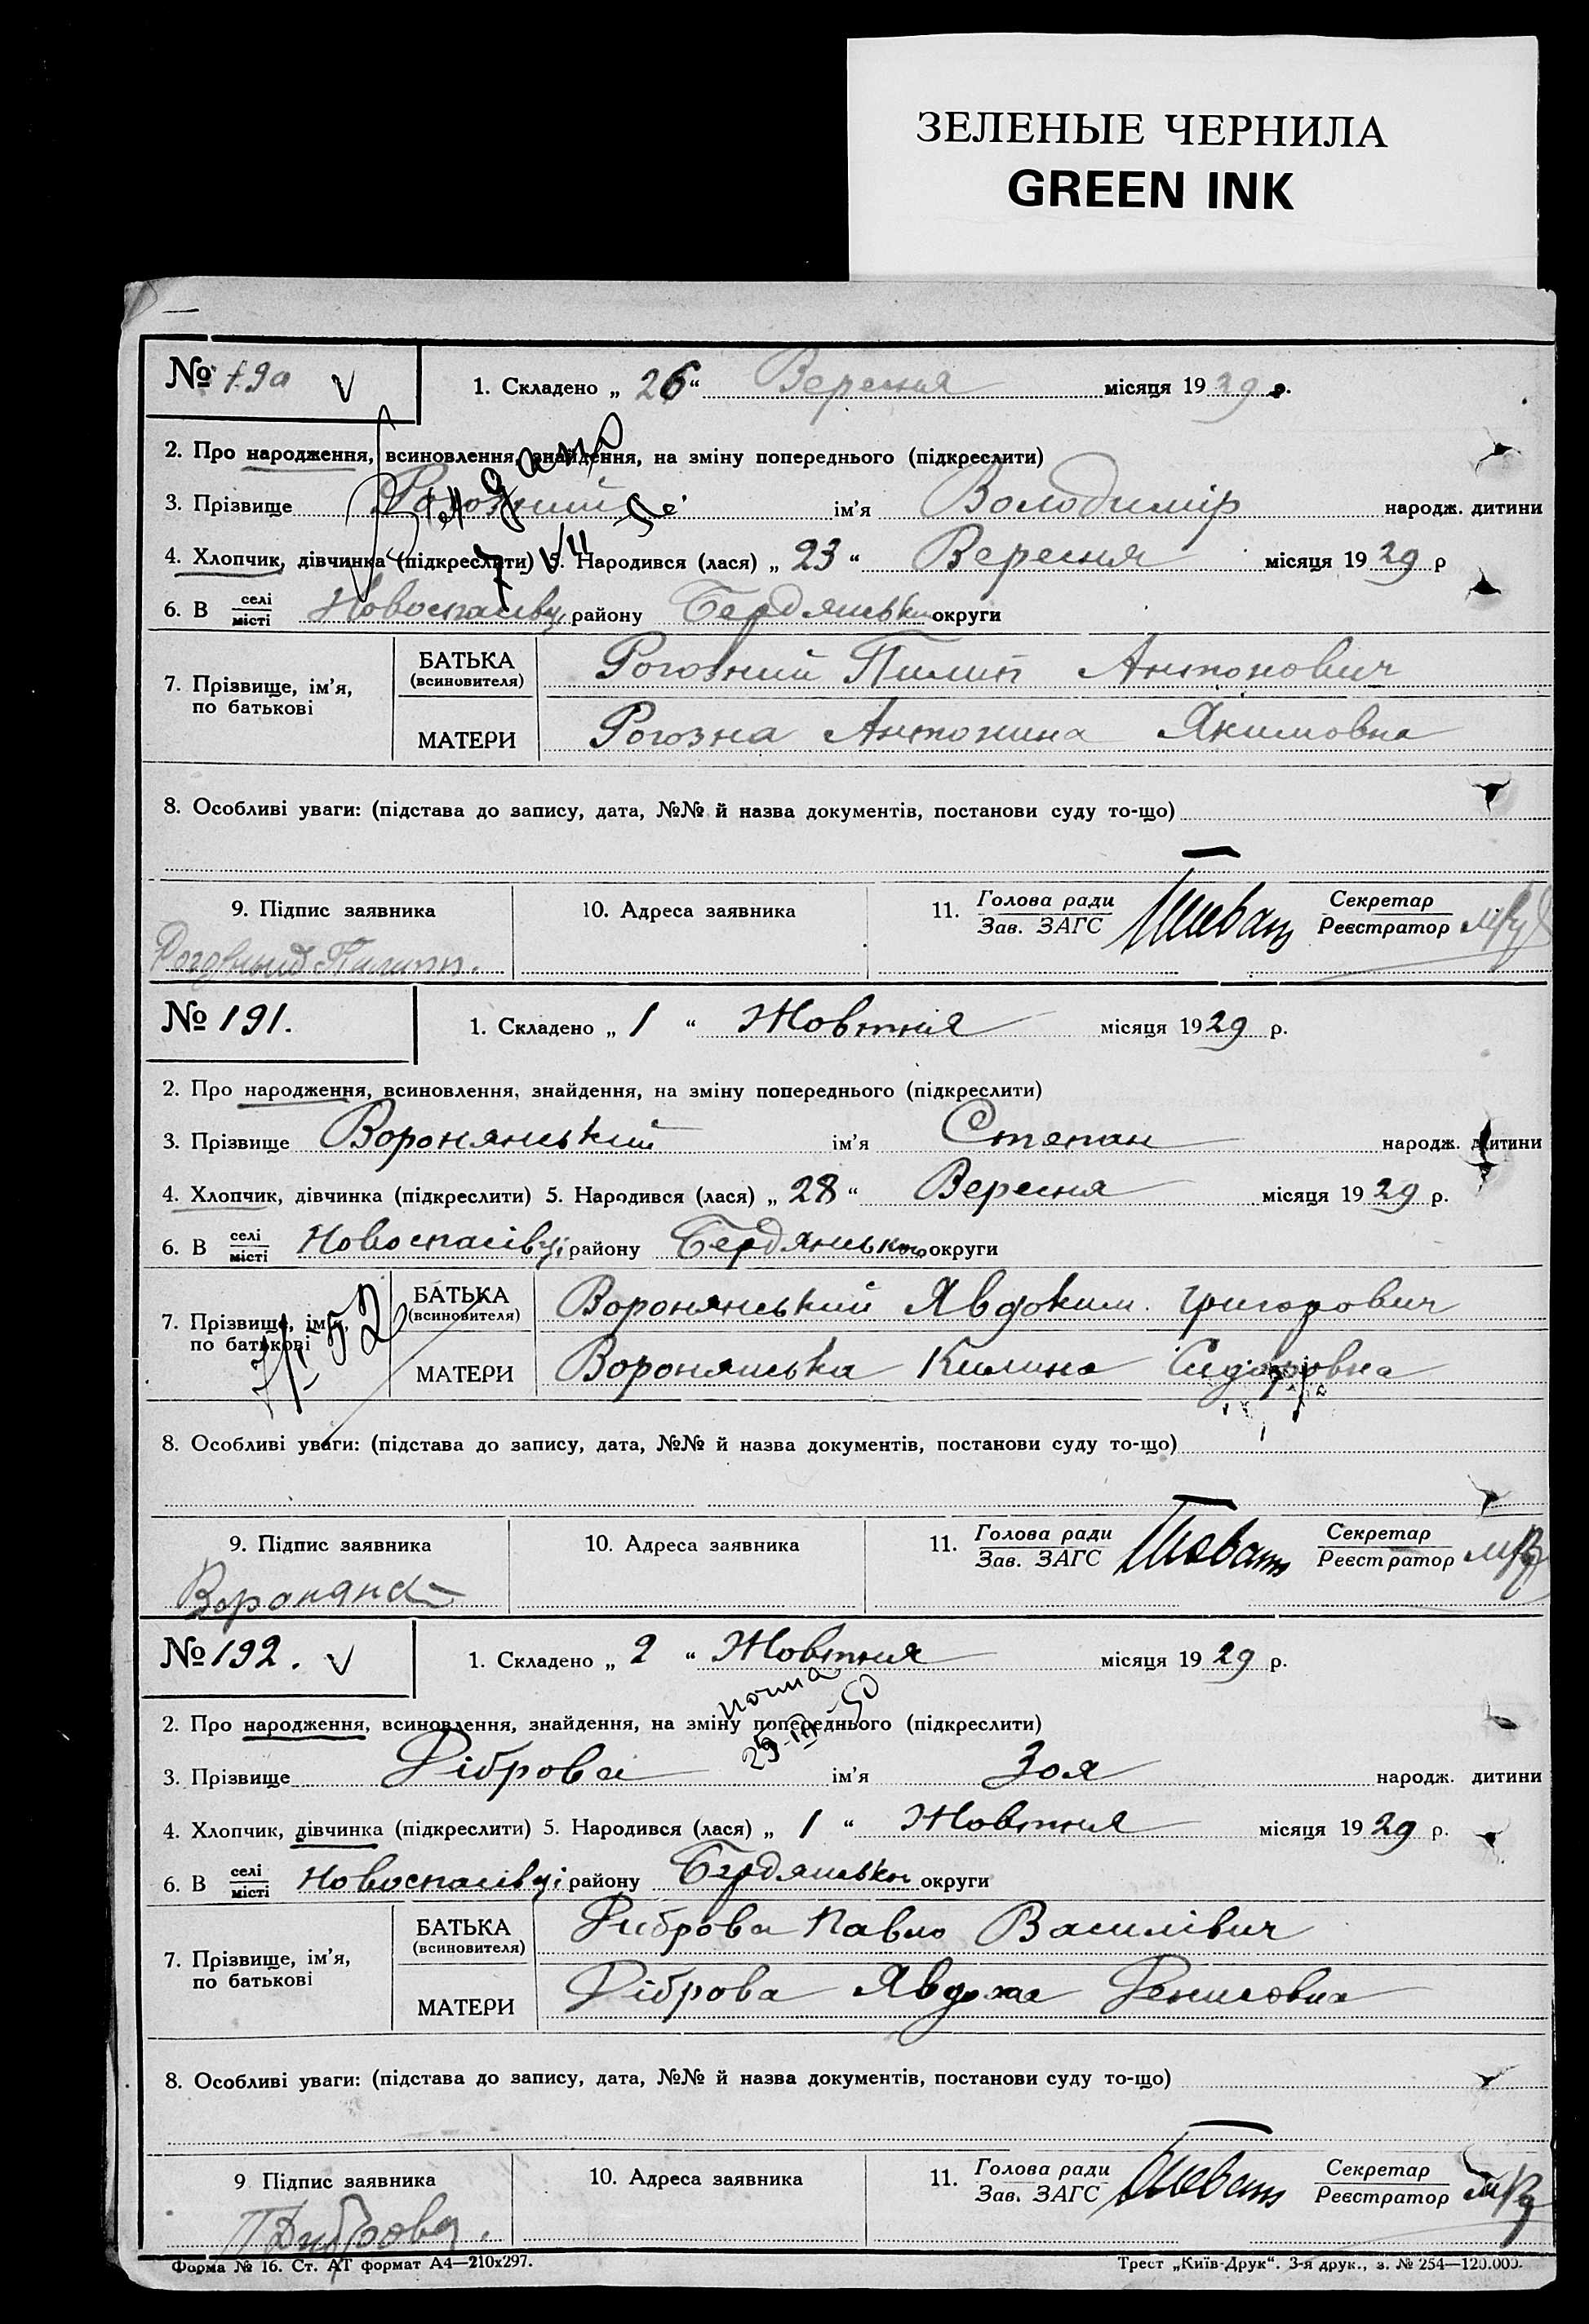 ЗЕЛЕНЫЕ ЧЕРНИЛА
GREEN INK
№ 190 V 1. Складено „ 26 “ Вересня місяця 1929 р.
2. Про народження, всиновлення, знайдення, на зміну попереднього (підкреслити)
3. Прізвище Рогозний ім'я Володимір народж. дитини
4. Хлопчик, дівчинка (підкреслити) 5. Народився (лася) „ 23 “ Вересня місяця 1929 р
6. В селі місті Новоспасівці району Бердянської округи
7. Прізвище, ім'я, по батькові
БАТЬКА (всиновителя) Рогозний Пилип Антонович
МАТЕРИ Рогозна Антонина Якимовна
8. Особливі уваги: (підстава до запису, дата, №№ й назва документів, постанови суду то-що)
9. Підпис заявника 10. Адреса заявника 11. Голова ради Зав. ЗАГС Секретар Реєстратор
№ 191. 1. Складено „ 1 “ Жовтня місяця 1929 р.
2. Про народження, всиновлення, знайдення, на зміну попереднього (підкреслити)
3. Прізвище Воронянський ім'я Степан народж. дитини
4. Хлопчик, дівчинка (підкреслити) 5. Народився (лася) „ 28 “ Вересня місяця 1929 р.
6. В селі місті Новоспасівці району Бердянської округи
7. Прізвище, ім'я, по батькові
БАТЬКА (всиновителя) Воронянський Явдоким Григорович
МАТЕРИ Воронянська Килина Сидоровна
8. Особливі уваги: (підстава до запису, дата, №№ й назва документів, постанови суду то-що)
9. Підпис заявника 10. Адреса заявника 11. Голова ради Зав. ЗАГС Секретар Реєстратор
№ 192. V 1. Складено „ 2 “ Жовтня місяця 1929 р.
2. Про народження, всиновлення, знайдення, на зміну попереднього (підкреслити)
25-III-50
3. Прізвище Діброва ім'я Зоя народж. дитини
4. Хлопчик, дівчинка (підкреслити) 5. Народився (лася) „ 1 “ Жовтня місяця 1929 р.
6. В селі місті Новоспасівці району Бердянської округи
7. Прізвище, ім'я, по батькові
БАТЬКА (всиновителя) Диброва Павло Василівич
МАТЕРИ Діброва Явдоха Денисовна
8. Особливі уваги: (підстава до запису, дата, №№ й назва документів, постанови суду то-що)
9 Підпис заявника 10. Адреса заявника 11. Голова ради Зав. ЗАГС Секретар Реєстратор
П Диброва.
Форма № 16. Ст. АТ формат А4—210х297. Трест „Київ-Друк“. 3-я друк., з. № 254—120.000.